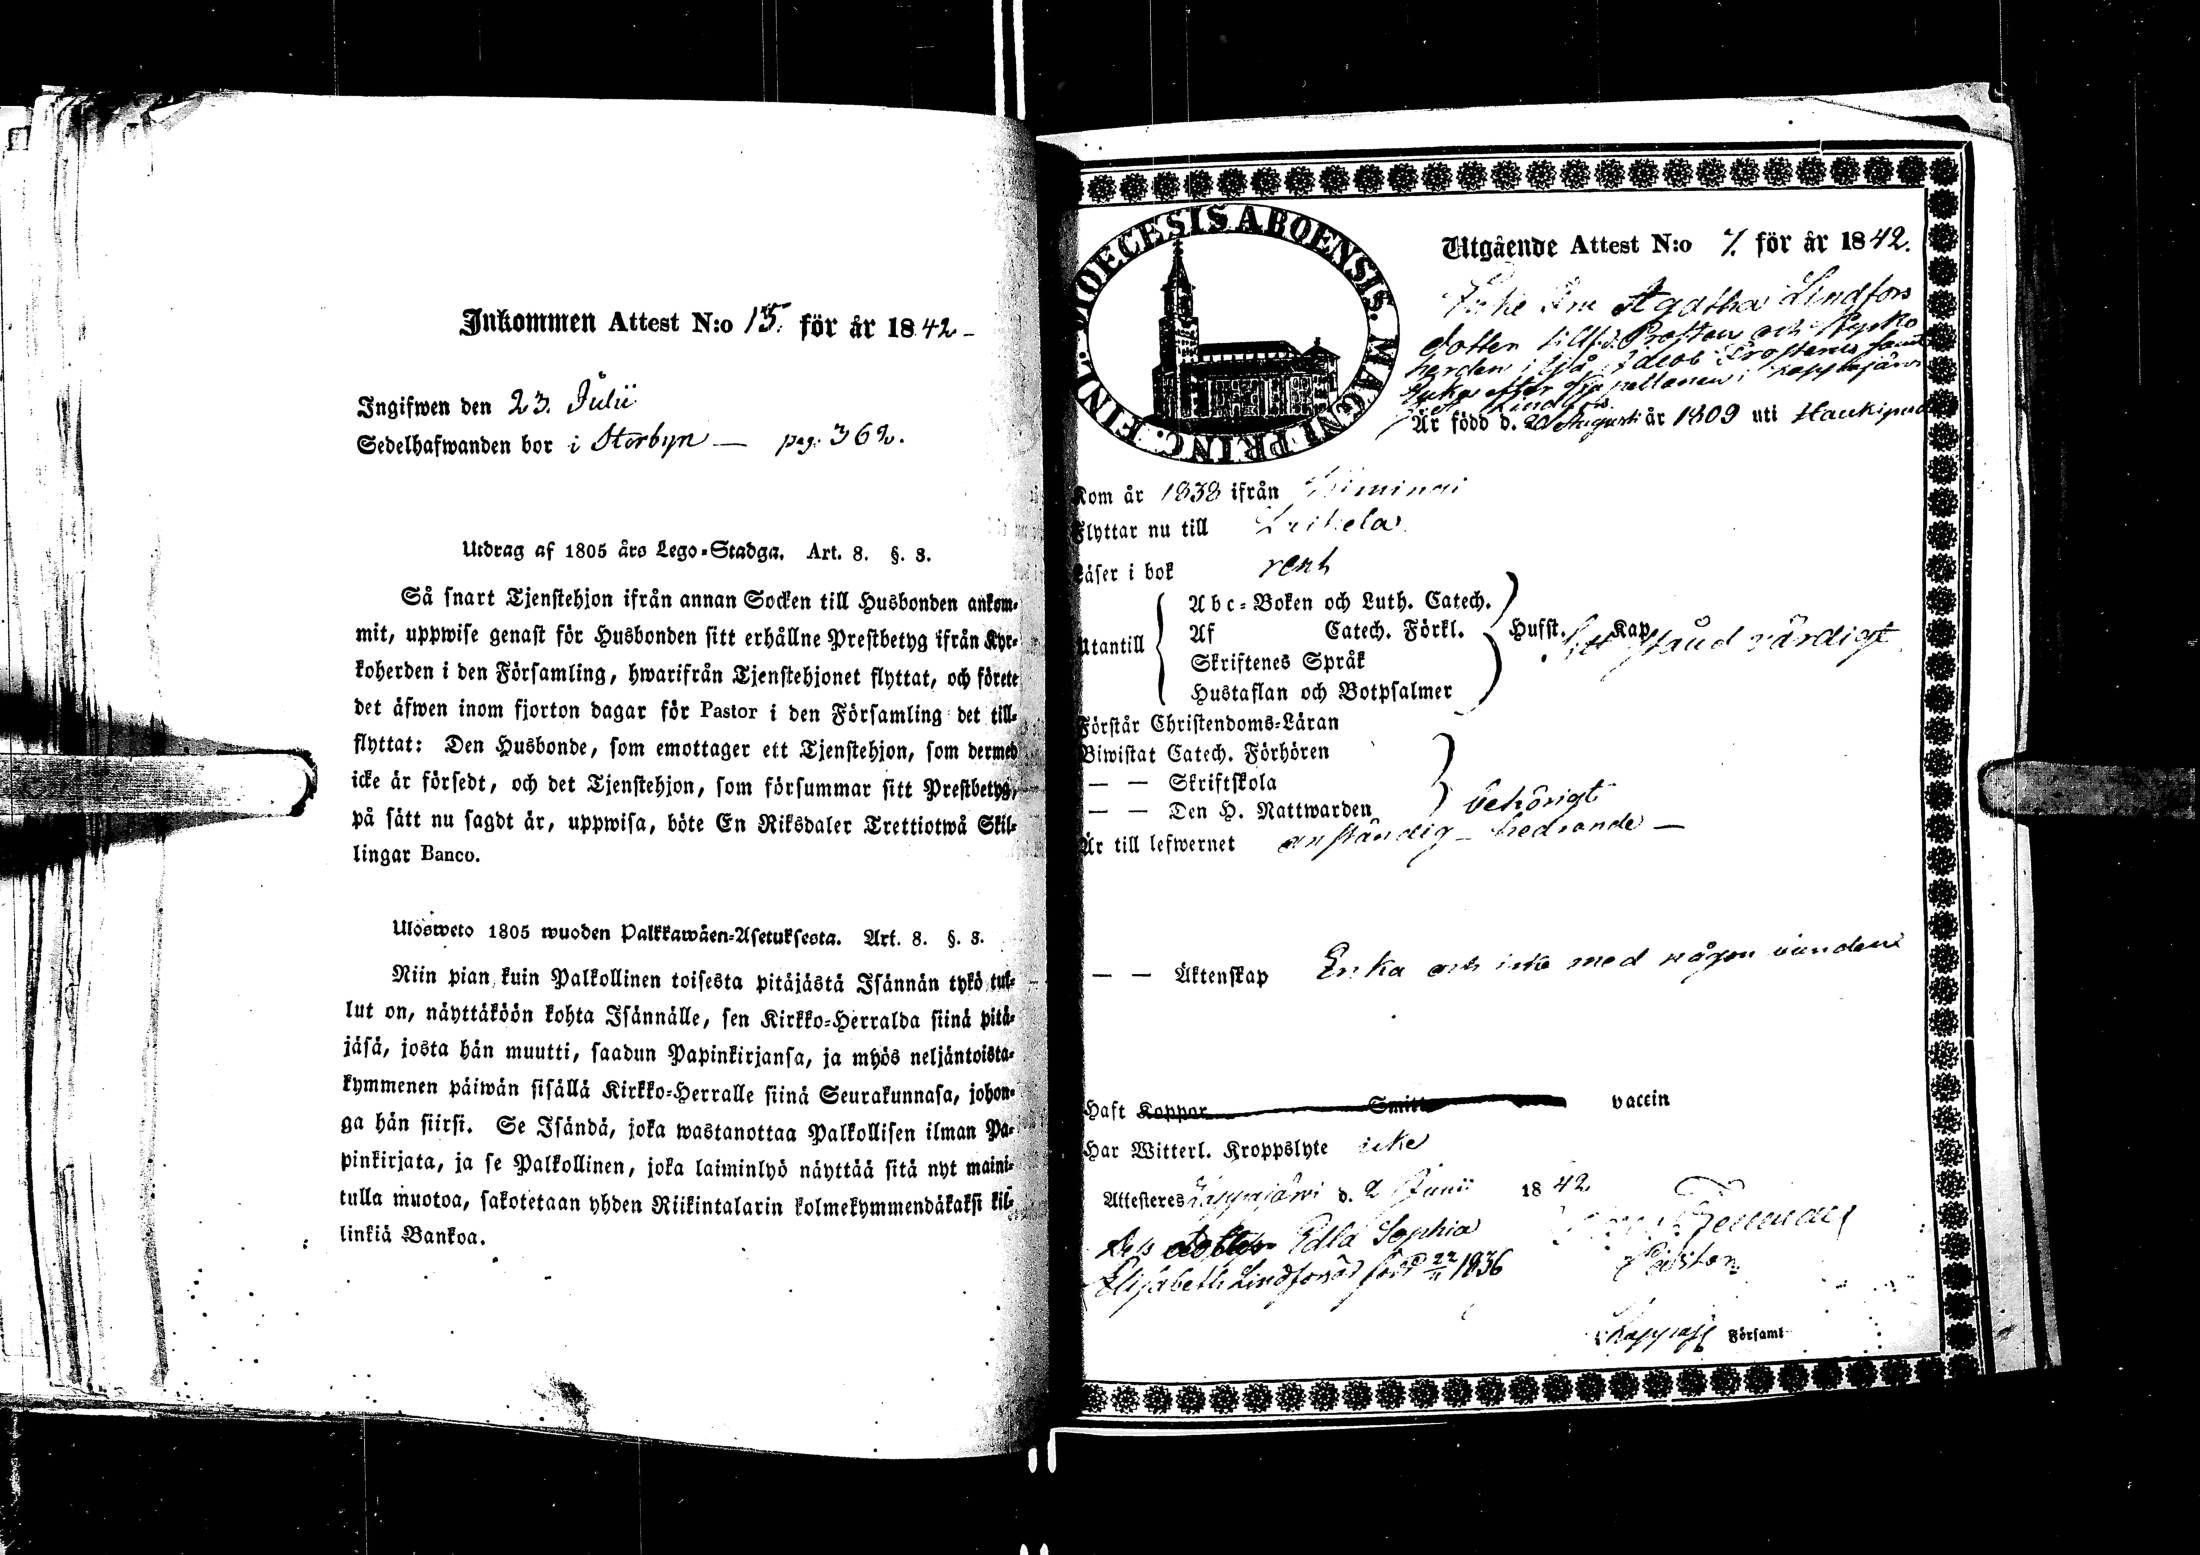 Inkommen Attest N:o 15. för år 1842 –
Ingifwen den 23. Julii
Sedelhafwanden bor i Storbyn — pag. 362.
Utdrag af 1805 års Lego-Stadga. Art. 8. §. 3.
Så snart Tjenstehjon ifrån annan Socken till Husbonden ankom-
mit, uppwise genast för Husbonden sitt erhållne Prestbetyg ifrån Kyr-
koherden i den Församling, hwarifrån Tjenstehjonet flyttat, och förete
det äfwen inom fjorton dagar för Pastor i den Församling det till-
flyttat: Den Husbonde, som emottager ett Tjenstehjon, som dermed
icke är försedt, och det Tjenstehjon, som försummar sitt Prestbetyg,
på sätt nu sagdt är, uppwisa, böte En Riksdaler Trettiotwå Skil-
lingar Banco.
Ulosweto 1805 wuoden Palkkawäen-Asetuksesta. Art. 8. §. 3.
Niin pian kuin Palkollinen toisesta pitäjästä Isännän tykö tul-
lut on, näyttäköön kohta Isännälle, sen Kirkko-Herralda siinä pitä-
jäsä, josta hän muutti, saadun Papinkirjansa, ja myös neljäntoista-
kymmenen päiwän sisällä Kirkko-Herralle siinä Seurakunnasa, johon-
ga hän siirsi. Se Isändä, joka wastanottaa Palkollisen ilman Pa-
pinkirjata, ja se Palkollinen, joka laiminlyö näyttää sitä nyt maini-
tulla muotoa, sakotetaan yhden Riikintalarin kolmekymmendäkaksi kil-
linkiä Bankoa.
DIOECESIS ABOENSIS. MAGNI PRINC. FINL.
Utgående Attest N:o 7. för år 1842.
Agatha Lindfors
dotten till Prosten och Kyrko
herden i Ijå Jacob Frosterus samt
Enka efter Kapellanen i Lappajärvi
Lindfors
Är född d. 20 Augusti år 1809 uti Haukipud
Kom år 1838 ifrån Kiminгi
Flyttar nu till
Läser i bok rent
Utantill
Abc-Boken och Luth. Catech.
Af Catech. Förkl. Husst. Kap
Skriftenes Språk
Hustaflan och Botpsalmer
Sitt stånd värdigt
Förstår Christendoms-Läran
Biwistat Catech. Förhören
— — Skriftskola
— — Den H. Nattwarden behörigt
Är till lefwernet anständig – hedrande —
— — Äktenskap Enka och icke med någon bunden
Haft Koppor Smitt vaccin
Har Witterl. Kroppslyte icke
Attesteres Lappajärvi d. 2 Junii 1842
Dess dotter Edla Sophia
Elisabeth Lindfors är född 22/11 1836
Pastor
Lappajärvi Församl